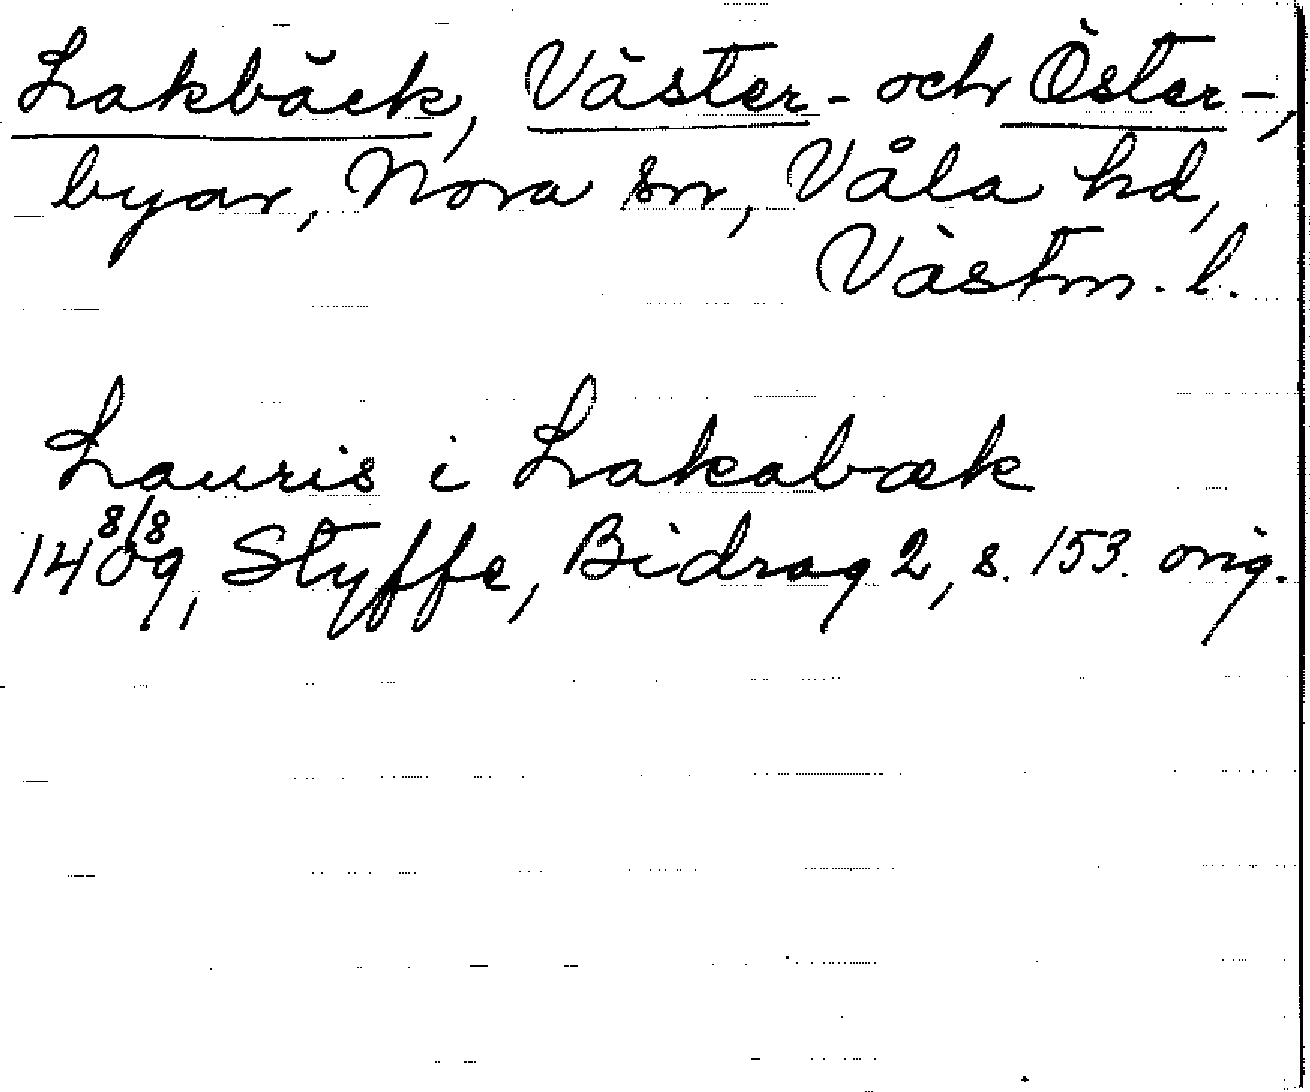 Lakbäck, Väster- och Öster-,
byar, Nora sn, Våla hd,
Västm. l.
Lauris i Lakabæk
1409 8/8, Styffe, Bidrag 2, s. 153. orig.